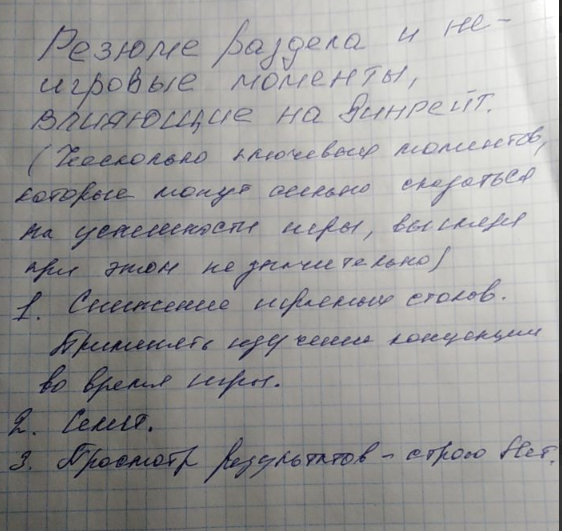 Резюме раздела и не-
игровые моменты,
влияющие на Винрейт.
(Несколько ключевых моментов,
которые могут сильно сказаться
на успешности игры, выглядя
при этом незначительно)
1. Снижение игровых столов.
Применять изученные концепции
во время игры.
2. Селект.
3. Просмотр результатов - строго Нет.